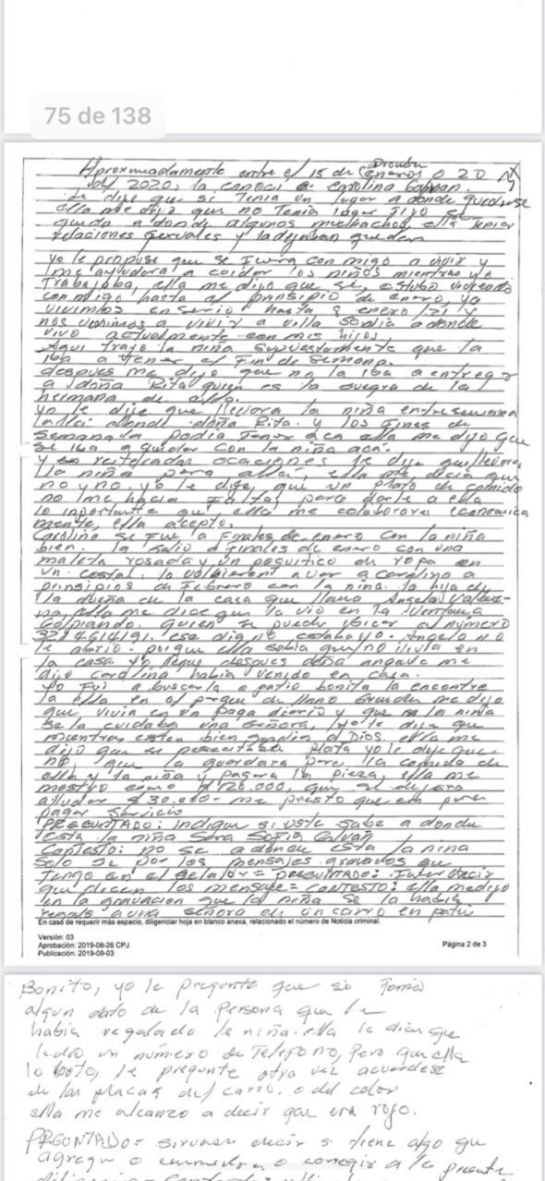 75 de 138
Aproximadamente entre el 15 de Diciembre enero o 20
del 2020, la conoci a Carolina Galvan.
le dije que si Tenia un lugar a donde quedarse
ella me dijo que no Tenia lugar fijo se
queda a donde algunos muchachos, ella Tenia
relaciones sexuales y la dejaban quedar
yo le propuse que se fuera con migo a vivir y
me ayudara a cuidar los niños mientras yo
Trabajaba, ella me dijo que si, estubo viviendo
con migo hasta el principio de enero, ya
vivimos en serio hasta 8 enero/21 y
nos venimos a vivir a villa Sonia a donde
vivo actualmente con mis hijos.
Aqui trajo la niña supuestamente que la
iba a tener el fin de semana.
despues me dijo que no la iba a entregar
a doña Rita quien es la suegra de la
hermana de ella.
yo le dije que llevara la niña entre semana
donde doña Rita y los fines de
semana la podia Tener aca ella me dijo que
se iba a quedar con la niña acá.
y en reiteradas ocaciones le dije que llevara
la niña para alla, ella me decia que
no y no, yo le dije, que un plato de comida
no me hacia falta para darle a ella
lo importante que ella me colaborara economica
mente, ella acepto.
Carolina se fue a finales de enero con la niña
bien. la salio a finales de enero con una
maleta rosada y un poquitico de ropa en
un costal. la volbieron a ver a Carolina a
prinsipios de Febrero con la niña. la hija de
la dueña de la casa que llama Angela
ella me dice que la vio en la ventana
golpiando. quien se puede ubicar al número
3214614191. ese dia no estaba yo. Angela no
le abrio. porque ella sabia que no vivia en
la casa. yo llegue despues doña angela me
dijo Carolina habia venido en casa.
yo fui a buscarla a patio bonita la encontre
a ella en el parque de llano Grande me dijo
que vivia en un paga diario y que a la niña
se la cuidaba una señora, yo le dije que
mientras esten bien gracias a Dios. ella me
dijo que si necesitaba plata yo le dije que
no, que la guardara para la comida de
ella y la niña y pagara la pieza, ella me
mostro como $ 120.000, que si dejara
$ 30.000- me presto que era para
pagar servicio
PREGUNTADO: Indique si usted sabe a donde
esta la niña Sara Sofia Galvan
Contesto: no se a donde esta la niña
Solo se por los mensajes gravados que
Tengo en el celular= PREGUNTADO: decir
que dicen los mensaje= CONTESTO: ella me dijo
en la gravacion que la niña se la habia
regalo a una señora de un carro en patio
En caso de requerir más espacio, diligenciar hoja en blanco anexa, relacionado el número de Noticia criminal.
Versión: 03
Aprobación: 2019-08-26 CPJ
Publicación: 2019-09-03
Página 2 de 3
Bonito, yo le pregunte que si Tomó
algun dato de la Persona que le
habia regalado la niña. ella le dice que
le dio un número de Telefono, Pero que ella
lo boto, le pregunte otra vez acuerdese
de las placas del carro, o del color
ella me alcanzo a decir que era rojo.
PREGUNTADO= sirvase decir si tiene algo que
agregar o enmendar o corregir a la presente